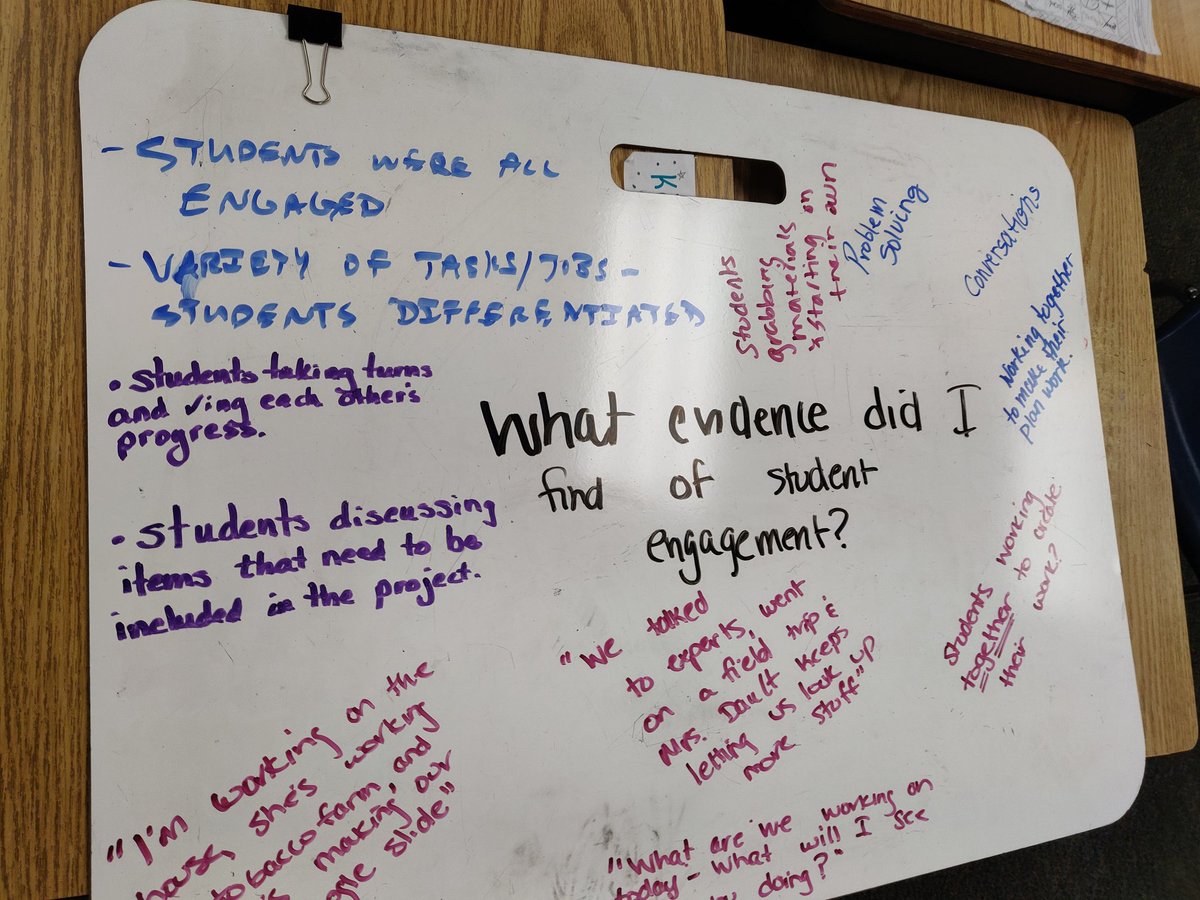 - STUDENTS WERE ALL
ENGAGED
- VARIETY OF TASKS/JOBS -
STUDENTS DIFFERENTIATED
• Students taking turns
and ving each others
progress.
• Students discussing
items that need to be
included in the project.
K
Students
grabbing
materials
+ starting on
their own
Problem
Solving
Conversations
Working together
to make their
plan work.
What evidence did I
find of student
engagement?
Students working
together to create
their work?
"We talked
to experts, went
on a field trip &
Mrs. Dault keeps
letting us look up
more stuff"
"I'm working on the
house, she's working
tobacco farm, and
making our
slide"
"What are we working on
today - what will I see
doing?"